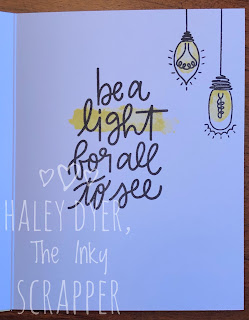 be a
light
for all
to see
HALEY DYER,
The Inky
SCRAPPER